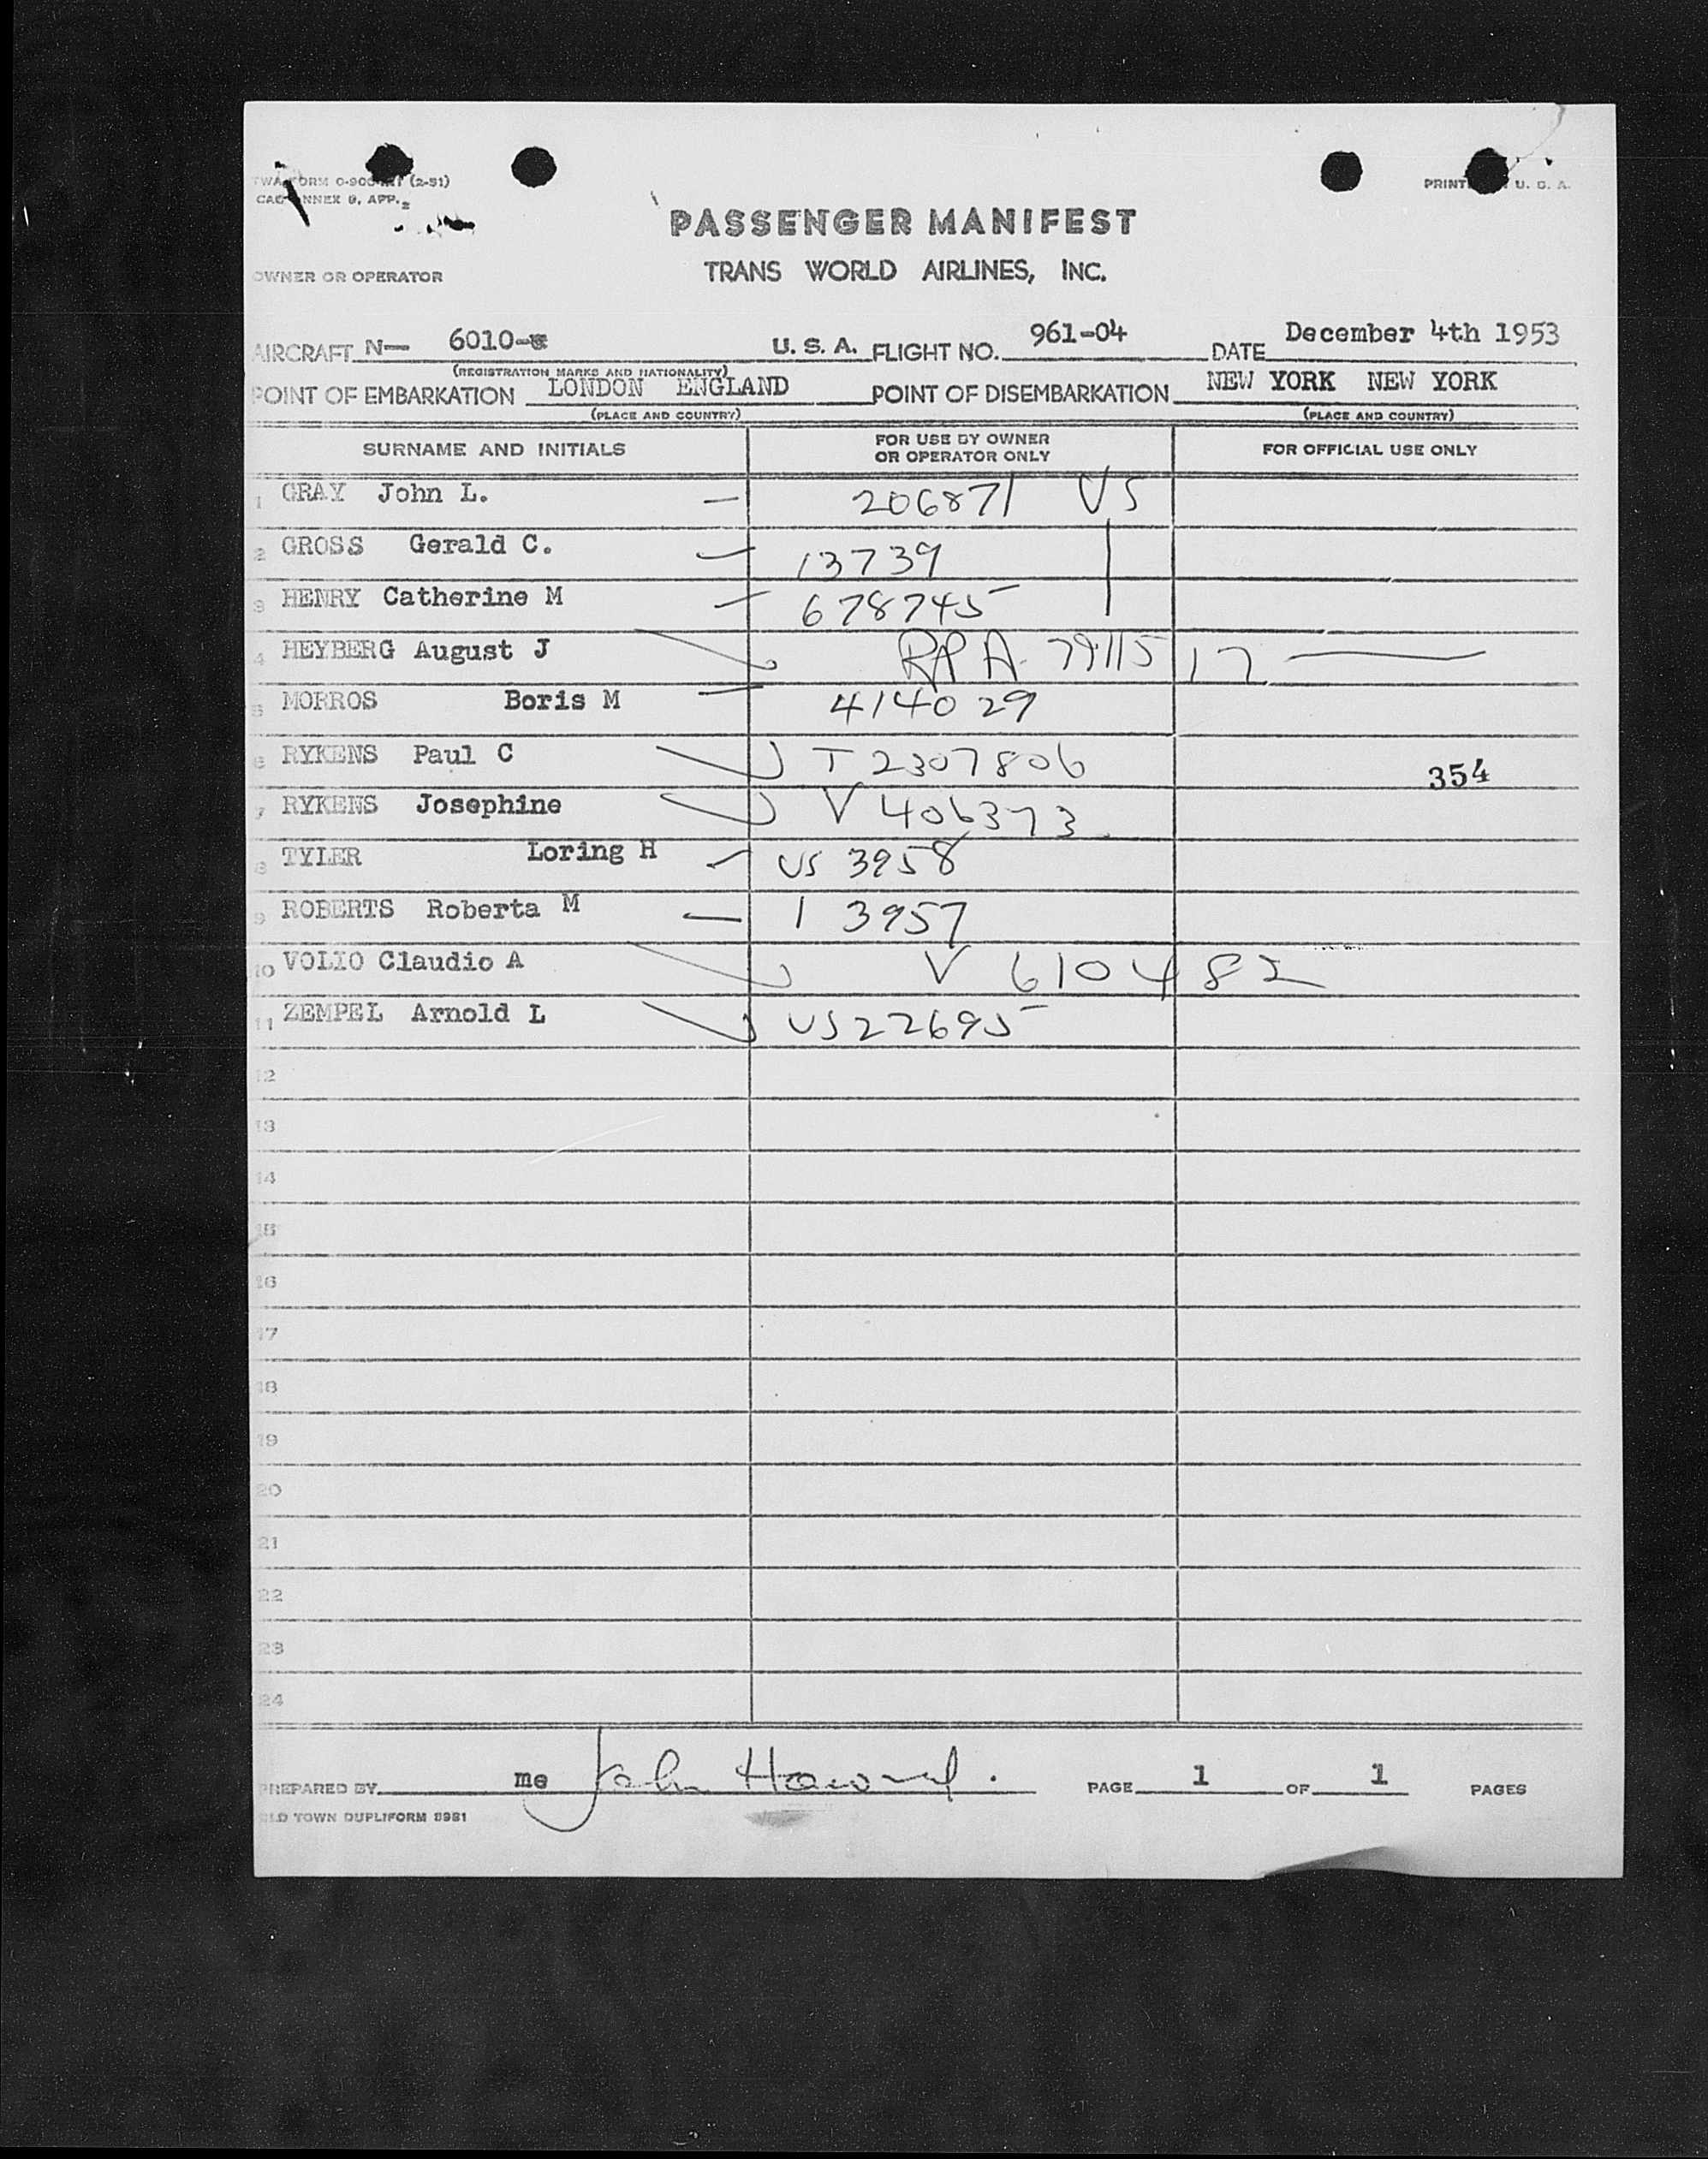 TWA FORM 0-900 (2-51)
PRINTED U. S. A.
CAO ANNEX 9, APP. 2
PASSENGER MANIFEST
OWNER OR OPERATOR
TRANS WORLD AIRLINES, INC.
AIRCRAFT N— 6010- U. S. A. FLIGHT NO. 961-04 DATE December 4th 1953
(REGISTRATION MARKS AND NATIONALITY)
POINT OF EMBARKATION LONDON ENGLAND POINT OF DISEMBARKATION NEW YORK NEW YORK
(PLACE AND COUNTRY) (PLACE AND COUNTRY)
SURNAME AND INITIALS FOR USE BY OWNER OR OPERATOR ONLY FOR OFFICIAL USE ONLY
1 GRAY John L. — 206871 US
2 GROSS Gerald C. — 13739
3 HENRY Catherine M — 678745
4 HEYBERG August J RPA 7911517 —
5 MORROS Boris M — 414029
6 RYKENS Paul C T 2307806
354
7 RYKENS Josephine V 406373
8 TYLER Loring H — US 3958
9 ROBERTS Roberta M — 1 3957
10 VOLIO Claudio A V 610482
11 ZEMPEL Arnold L US22695
12
13
14
15
16
17
18
19
20
21
22
23
24
PREPARED BY me John Howard. PAGE 1 OF 1 PAGES
OLD TOWN DUPLIFORM 8981